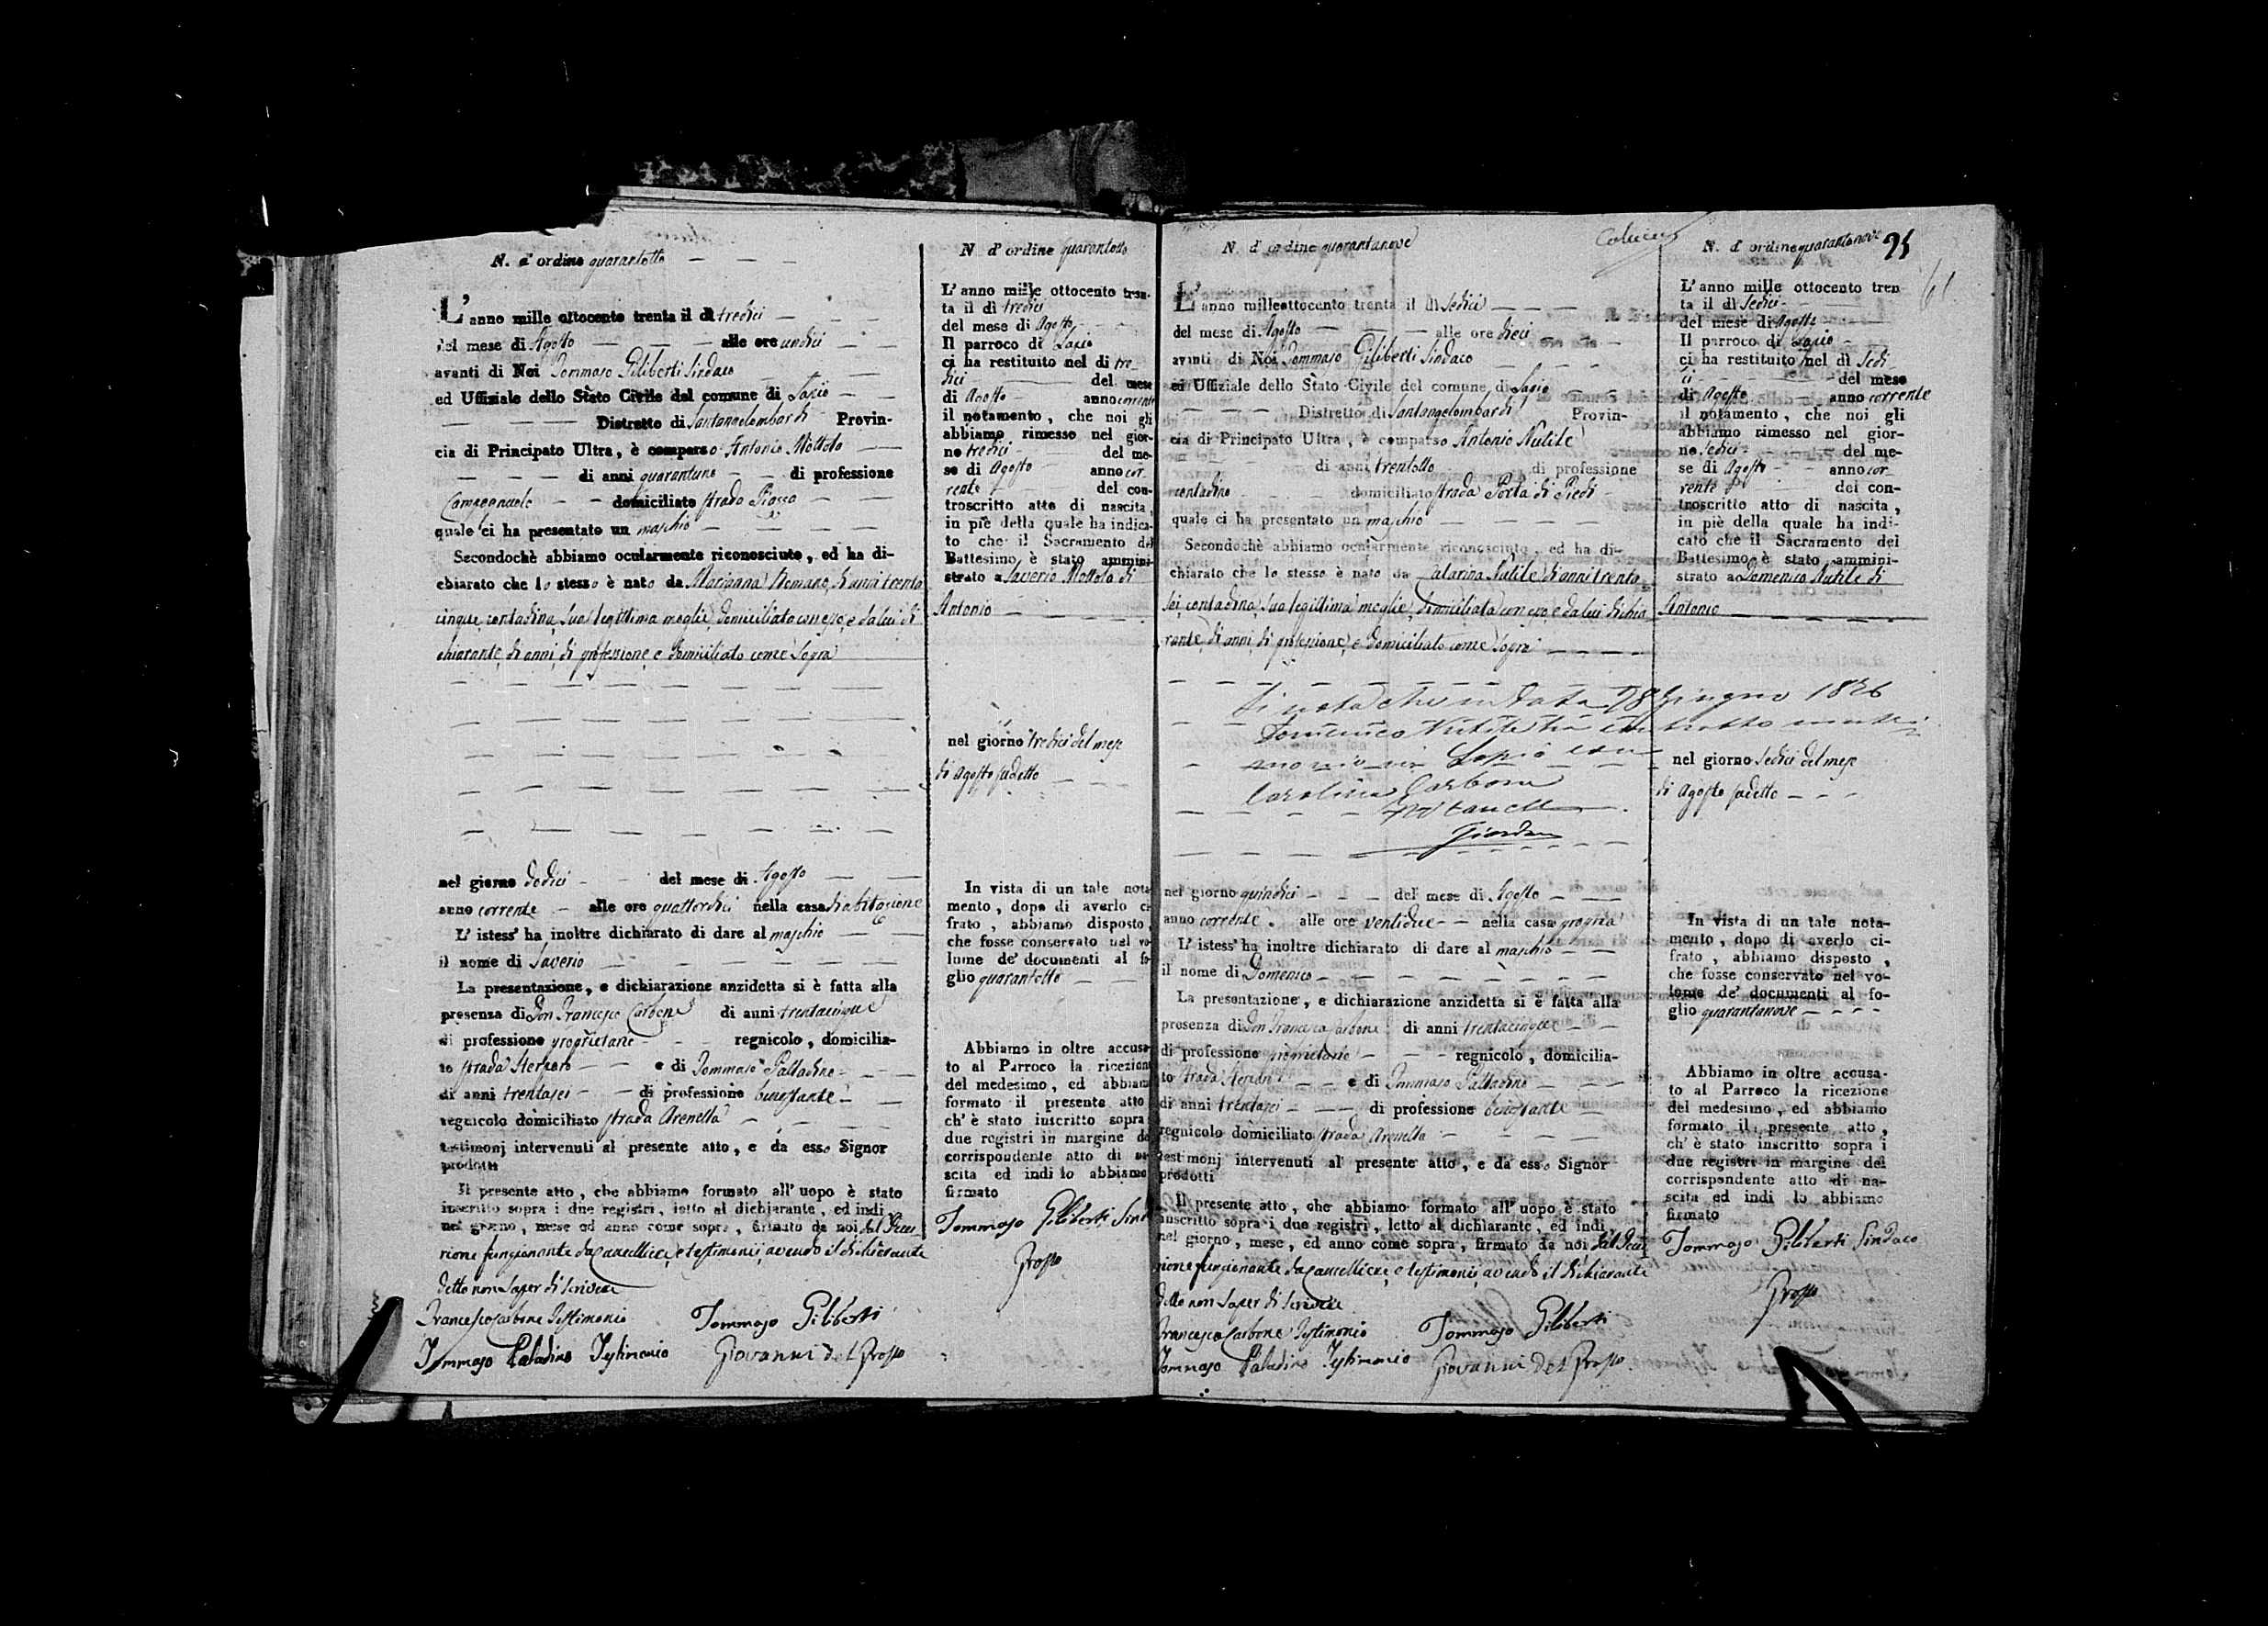 N. d'ordine quarantotto
L'anno mille ottocento trenta il di tredici
del mese di Agosto alle ore undici
avanti di Noi Tommaso Giliberti Sindaco
ed Uffiziale dello Stato Civile del comune di Lapio
Distretto di Santangelombardi Provin-
cia di Principato Ultra, è comparso Antonio Mottola
di anni quarantuno di professione
Campagnuolo domiciliato strada Piazza
quale ci ha presentato un maschio
Secondochè abbiamo ocularmente riconosciuto, ed ha di-
chiarato che lo stesso è nato da Marianna Romano, di anni trenta
cinque, contadina, sua legittima moglie, domiciliata con esso, e da lui di
chiarante, di anni, di professione, e domiciliato come sopra
nel giorno dodici del mese di Agosto
anno corrente alle ore quattordici nella casa di abitazione
L'istess' ha inoltre dichiarato di dare al maschio
il nome di Saverio
La presentazione, e dichiarazione anzidetta si è fatta alla
presenza di Don Francesco Carbone di anni trentacinque
di professione proprietario regnicolo, domicilia-
to strada e di Tommaso Palladino
di anni trentasei di professione benestante
regnicolo domiciliato strada Arenella
testimonj intervenuti al presente atto, e da esso Signor
prodotti
Il presente atto, che abbiamo formato all'uopo è stato
inscritto sopra i due registri, letto al dichiarante, ed indi
nel giorno, mese ed anno come sopra, firmato da noi, dal Decu
rione funzionante da Cancelliere, e testimonii, avendo il dichiarante
detto non saper di scrivere
Francesco Carbone Testimonio Tommaso Giliberti
Tommaso Paladino Testimonio Giovanni Del Grosso
N d'ordine quarantotto
L'anno mille ottocento tren-
ta il di tredici
del mese di Agosto
Il parroco di Lapio
ci ha restituito nel di tre-
dici del mese
di Agosto anno corrente
il notamento, che noi gli
abbiamo rimesso nel gior-
no tredici del me-
se di Agosto anno cor-
rente del con-
troscritto atto di nascita,
in piè della quale ha indica-
to che il Sacramento del
Battesimo è stato ammini-
strato a Saverio Mottola di
Antonio
nel giorno tredici del mese
di Agosto sudetto
In vista di un tale nota-
mento, dopo di averlo ci
frato, abbiamo disposto,
che fosse conservato nel vo-
lume de' documenti al fo-
glio quarantotto
Abbiamo in oltre accusa-
to al Parroco la ricezione
del medesimo, ed abbiamo
formato il presente atto
ch'è stato inscritto sopra
due registri in margine del
corrispondente atto di na-
scita ed indi lo abbiamo
firmato
Tommaso Giliberti Sind
Grosso
N. d'ordine quarantanove
L'anno milleottocento trenta il di sedici
del mese di Agosto alle ore dieci
avanti di Noi Tommaso Giliberti Sindaco
ed Uffiziale dello Stato Civile del comune di Lapio
Distretto di Santangelombardi Provin-
cia di Principato Ultra, è comparso Antonio Nutile
di anni trentotto di professione
contadino domiciliato strada Porta di Piedi
quale ci ha presentato un maschio
Secondochè abbiamo ocularmente riconosciuto, ed ha di-
chiarato che lo stesso è nato da Catarina Nutile di anni trenta
sei, contadina, sua legittima moglie, domiciliata con esso, e da lui dichia
rante, di anni, di professione, e domiciliato come sopra
Si nota che in data 18 Giugno 18 6
Domenico Nutile ha contratto matri-
monio in Lapio con
Carolina Carbone
Giordano
nel giorno quindici del mese di Agosto
anno corrente alle ore ventidue nella casa propria
L'istess' ha inoltre dichiarato di dare al maschio
il nome di Domenico
La presentazione, e dichiarazione anzidetta si è fatta alla
presenza di Don Francesco Carbone di anni trentacinque
di professione proprietario regnicolo, domicilia-
to strada e di Tommaso Palladino
di anni trentasei di professione benestante
regnicolo domiciliato strada Arenella
testimonj intervenuti al presente atto, e da esso Signor
prodotti
Il presente atto, che abbiamo formato all'uopo è stato
inscritto sopra i due registri, letto al dichiarante, ed indi
nel giorno, mese, ed anno come sopra, firmato da noi, dal Decu
rione funzionante da Cancelliere, e testimonii, avendo il dichiarante
detto non saper di scrivere
Francesco Carbone Testimonio Tommaso Giliberti
Tommaso Paladino Testimonio Giovanni Del Grosso
N. d'ordine quarantanove 95
61
L'anno mille ottocento tren
ta il dì sedici
del mese di Agosto
Il parroco di Lapio
ci ha restituito nel dì sedi
ci del mese
di Agosto anno corrente
il notamento, che noi gli
abbiamo rimesso nel gior-
no sedici del me-
se di Agosto anno cor-
rente del con-
troscritto atto di nascita,
in piè della quale ha indi-
cato che il Sacramento del
Battesimo è stato ammini-
strato a Domenico Nutile di
Antonio
nel giorno sedici del mese
di Agosto sudetto
In vista di un tale nota-
mento, dopo di averlo ci-
frato, abbiamo disposto,
che fosse conservato nel vo-
lume de' documenti al fo-
glio quarantanove
Abbiamo in oltre accusa-
to al Parroco la ricezione
del medesimo, ed abbiamo
formato il presente atto,
ch'è stato inscritto sopra i
due registri in margine del
corrispondente atto di na-
scita ed indi lo abbiamo
firmato
Tommaso Giliberti Sindaco
Grosso